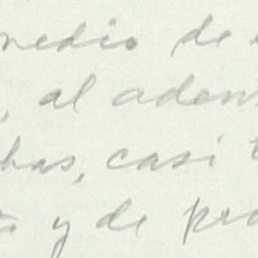 medio de
, al adem
has, casi
y de pro